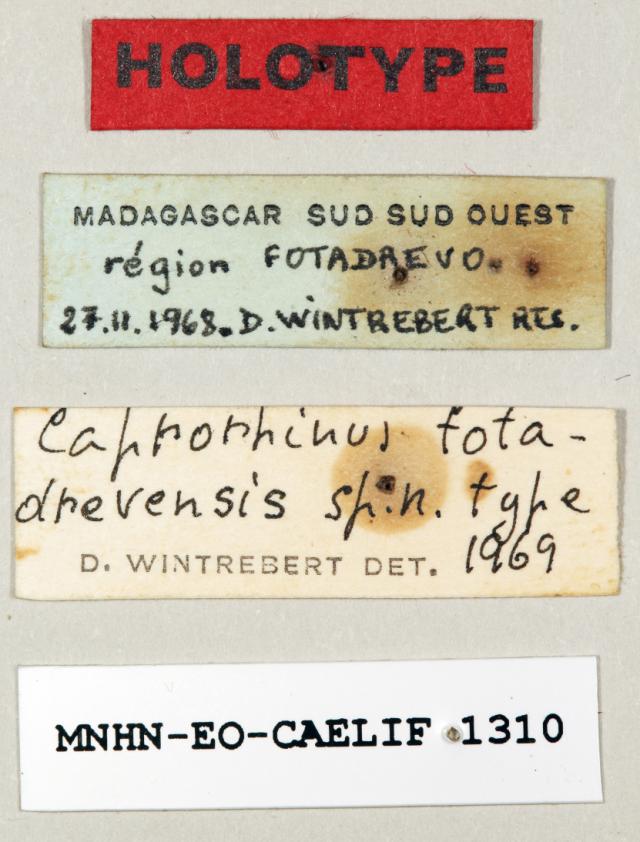 HOLOTYPE
MADAGASCAR SUD SUD OUEST
région FOTADREVO.
27.11.1968. D. WINTREBERT RES.
Caprorhinus fota-
drevensis sp.n. type
D. WINTREBERT DET. 1969
MNHN-EO-CAELIF 1310